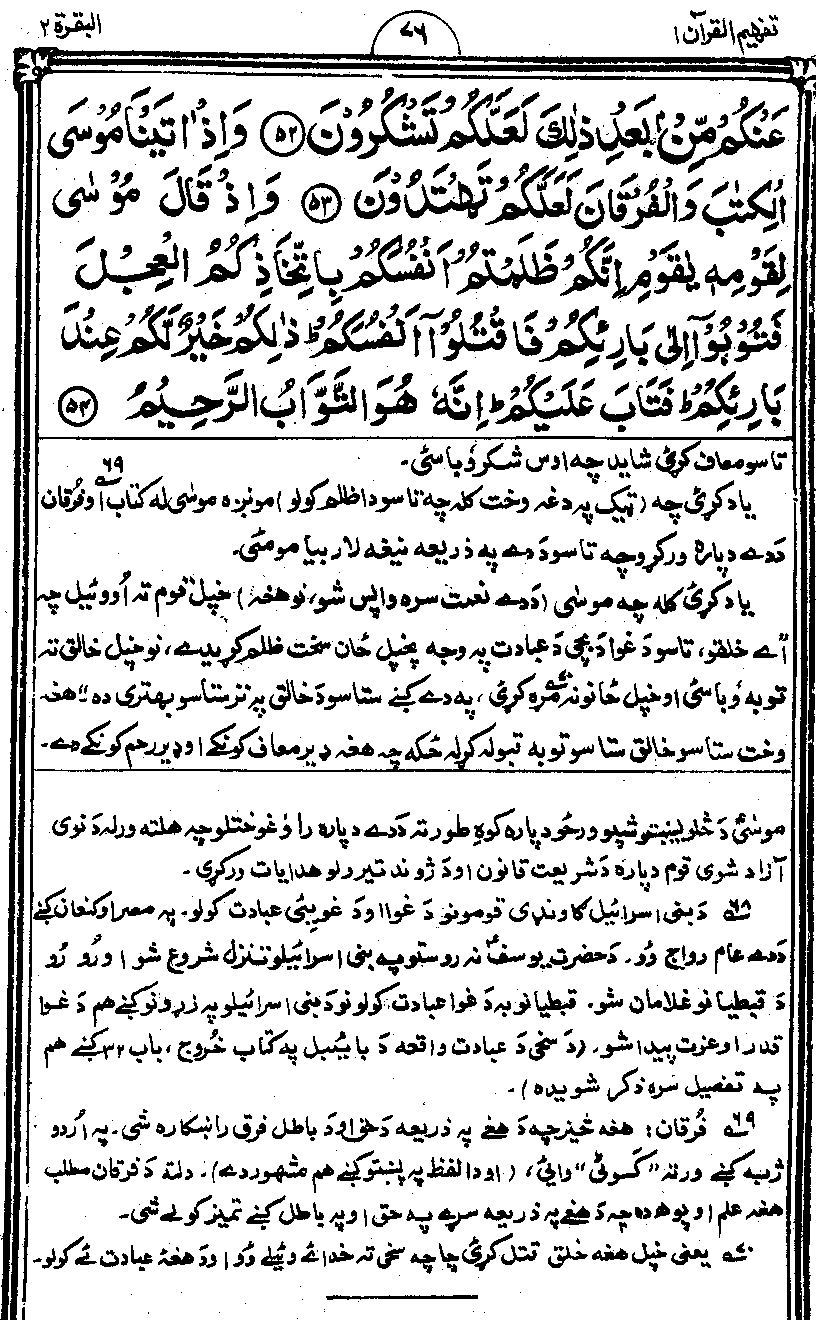 تفهیم القرآن ۱
۷۶
البقرة ۲
عَنْكُمْ مِّنْۢ بَعْدِ ذٰلِكَ لَعَلَّكُمْ تَشْكُرُوْنَ ﴿۵۲﴾ وَاِذْ اٰتَيْنَا مُوْسَى
الْكِتٰبَ وَالْفُرْقَانَ لَعَلَّكُمْ تَهْتَدُوْنَ ﴿۵۳﴾ وَاِذْ قَالَ مُوْسٰى
لِقَوْمِهٖ يٰقَوْمِ اِنَّكُمْ ظَلَمْتُمْ اَنْفُسَكُمْ بِاتِّخَاذِكُمُ الْعِجْلَ
فَتُوْبُوْٓا اِلٰى بَارِئِكُمْ فَاقْتُلُوْٓا اَنْفُسَكُمْ ؕ ذٰلِكُمْ خَيْرٌ لَّكُمْ عِنْدَ
بَارِئِكُمْ ؕ فَتَابَ عَلَيْكُمْ ؕ اِنَّهٗ هُوَ التَّوَّابُ الرَّحِيْمُ ﴿۵۴﴾
تاسو معاف کړئ شاید چه اوس شکر وباسئ۔
یاد کړئ چه (ټیک په دغه وخت کله چه تاسو دا ظلم کولو) مونږه موسٰی له کتاب او فرقان ۶۹
ددے دپاره ورکړو چه تاسو ددے په ذریعه نیغه لار بیا مومئ۔
یاد کړئ کله چه موسٰی (ددے نعمت سره واپس شو، نو هغه) خپل قوم ته اووئیل چه
"اے خلقو، تاسو د غوا د بچی د عبادت په وجه پخپل ځان سخت ظلم کړیدے، نو خپل خالق ته
توبه وباسئ او خپل ځانونه مړه کړئ ۷۰، په دے کښے ستاسو د خالق په نزد ستاسو بهتری ده"! هغه
وخت ستاسو خالق ستاسو توبه قبوله کړله ځکه چه هغه ډیر معاف کونکے او ډیر رحم کونکے دے۔
موسٰیؑ د څلویښتو شپو ورځو دپاره کوهِ طور ته ددے دپاره را وغوختلو چه هلته ورله د نوی
آزاد شوی قوم دپاره د شریعت قانون او د ژوند تیرولو هدایات ورکړی۔
۶۸ د بنی اسرائیل ګاونډی قومونو د غوا او د غویی عبادت کولو۔ په مصر او کنعان کښے
ددے عام رواج وو۔ د حضرت یوسفؑ نه روستو چه بنی اسرائیلو تنزل شروع شو او رو رو
د قبطیانو غلامان شو۔ قبطیانو به د غوا عبادت کولو نو د بنی اسرائیلو په زړونو کښے هم د غوا
قدر او عزت پیدا شو۔ (د سخی د عبادت واقعه د بائیبل په کتاب خروج، باب ۳۲ کښے هم
په تفصیل سره ذکر شویده)۔
۶۹ فُرقان: هغه څیز چه د هغے په ذریعه د حق او د باطل فرق راښکاره شی۔ په اُردو
ژبه کښے ورته "کسوٹی" وائی، (او دا لفظ په پښتو کښے هم مشهور دے)۔ دلته د فرقان مطلب
هغه علم او پوهه ده چه د هغے په ذریعه سړے په حق او په باطل کښے تمیز کولے شی۔
۷۰ یعنی خپل هغه خلق قتل کړئ چا چه سخی ته خدائے وئیلے وو او د هغه عبادت ئے کولو۔